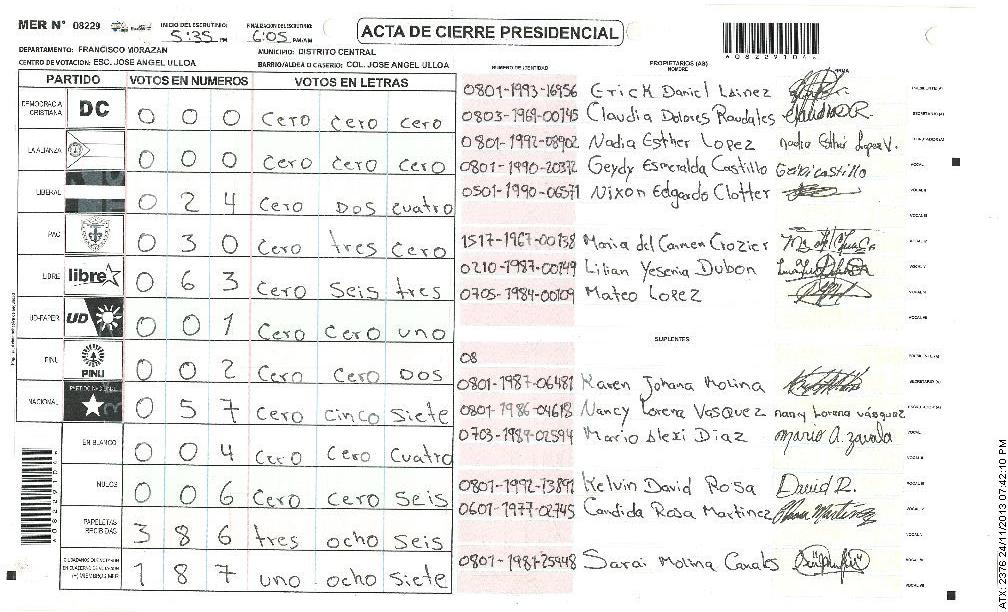 MER N° 08229 INICIO DEL ESCRUTINIO: 5:35 PM FINALIZACION DEL ESCRUTINIO: 6:05 PM/AM
ACTA DE CIERRE PRESIDENCIAL
A08229104
DEPARTAMENTO: FRANCISCO MORAZAN MUNICIPIO: DISTRITO CENTRAL
CENTRO DE VOTACION: ESC. JOSE ANGEL ULLOA BARRIO/ALDEA O CASERIO: COL. JOSE ANGEL ULLOA
PARTIDO VOTOS EN NUMEROS VOTOS EN LETRAS
DEMOCRACIA CRISTIANA DC 0 0 0 cero cero cero
LA ALIANZA 0 0 0 cero cero cero
LIBERAL 0 2 4 cero Dos cuatro
PAC 0 3 0 cero tres cero
LIBRE libre 0 6 3 cero seis tres
UD-FAPER UD 0 0 1 cero cero uno
PINU PINU 0 0 2 cero cero Dos
NACIONAL PARTIDO NACIONAL 0 5 7 cero cinco siete
EN BLANCO 0 0 4 cero cero cuatro
NULOS 0 0 6 cero cero seis
PAPELETAS RECIBIDAS 3 8 6 tres ocho seis
(+) MIEMBROS MER 1 8 7 uno ocho siete
NUMERO DE IDENTIDAD PROPIETARIOS (AS) NOMBRE FIRMA
0801-1993-16956 Erick Daniel Lainez PRESIDENTE(A)
0803-1969-00745 Claudia Dolores Raudales SECRETARIO(A)
0801-1992-08902 Nadia Esther Lopez Nadia Esther Lopez V.
0801-1990-20372 Geydy Esmeralda Castillo VOCAL
0501-1990-06571 Nixon Edgardo Clotter
1517-1967-00138 Maria del Carmen Crozier
0210-1987-00749 Lilian Yesenia Dubon
0705-1984-00109 Mateo Lopez
SUPLENTES
08
0801-1987-06481 Karen Johana Molina SECRETARIO(A)
0801-1986-04618 Nancy Lorena Vasquez nancy Lorena vásquez
0703-1989-02594 Mario Alexi Diaz mario a. zavala
0801-1992-13891 Kelvin David Rosa David R.
0601-1977-02745 Candida Rosa Martinez
0801-1981-25948 Sarai Molina Canales
ATX: 2376 24/11/2013 07:42:10 PM